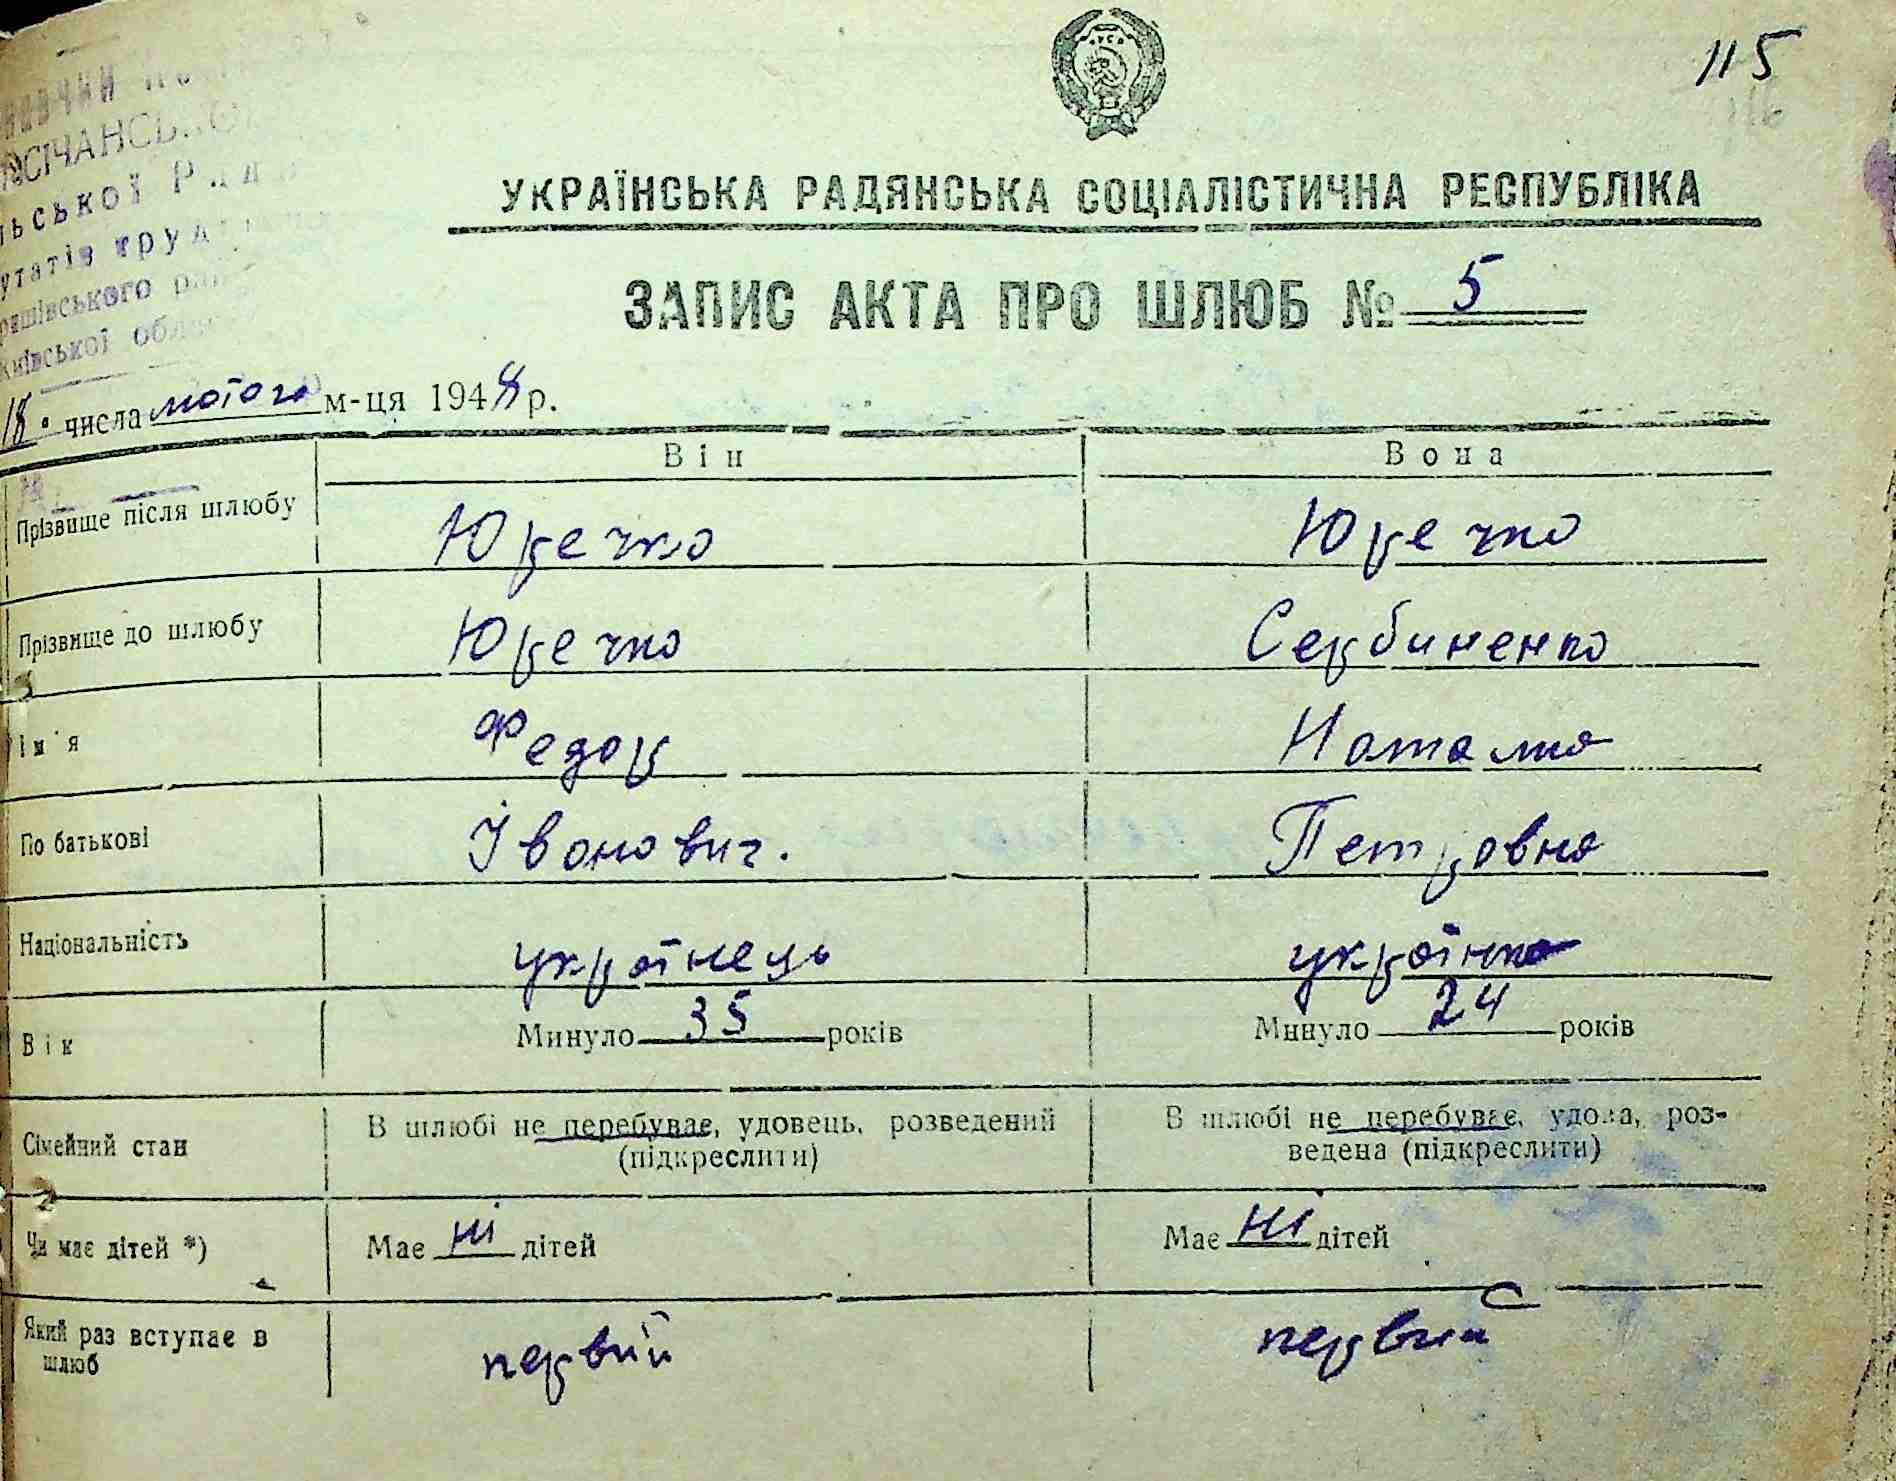 115
УКРАЇНСЬКА РАДЯНСЬКА СОЦІАЛІСТИЧНА РЕСПУБЛІКА
ЗАПИС АКТА ПРО ШЛЮБ № 5
18 числа лютого м-ця 1948 р.
Він Вона
Прізвище після шлюбу Юречко Юречко
Прізвище до шлюбу Юречко Сербиненко
Ім'я Федор Наталия
По батькові Іванович. Петровна
Національність українець українка
Вік Минуло 35 років Минуло 24 років
Сімейний стан В шлюбі не перебуває, удовець, розведений (підкреслити) В шлюбі не перебуває, удова, роз-
ведена (підкреслити)
Чи має дітей *) Має ні дітей Має ні дітей
Який раз вступає в шлюб первий первий